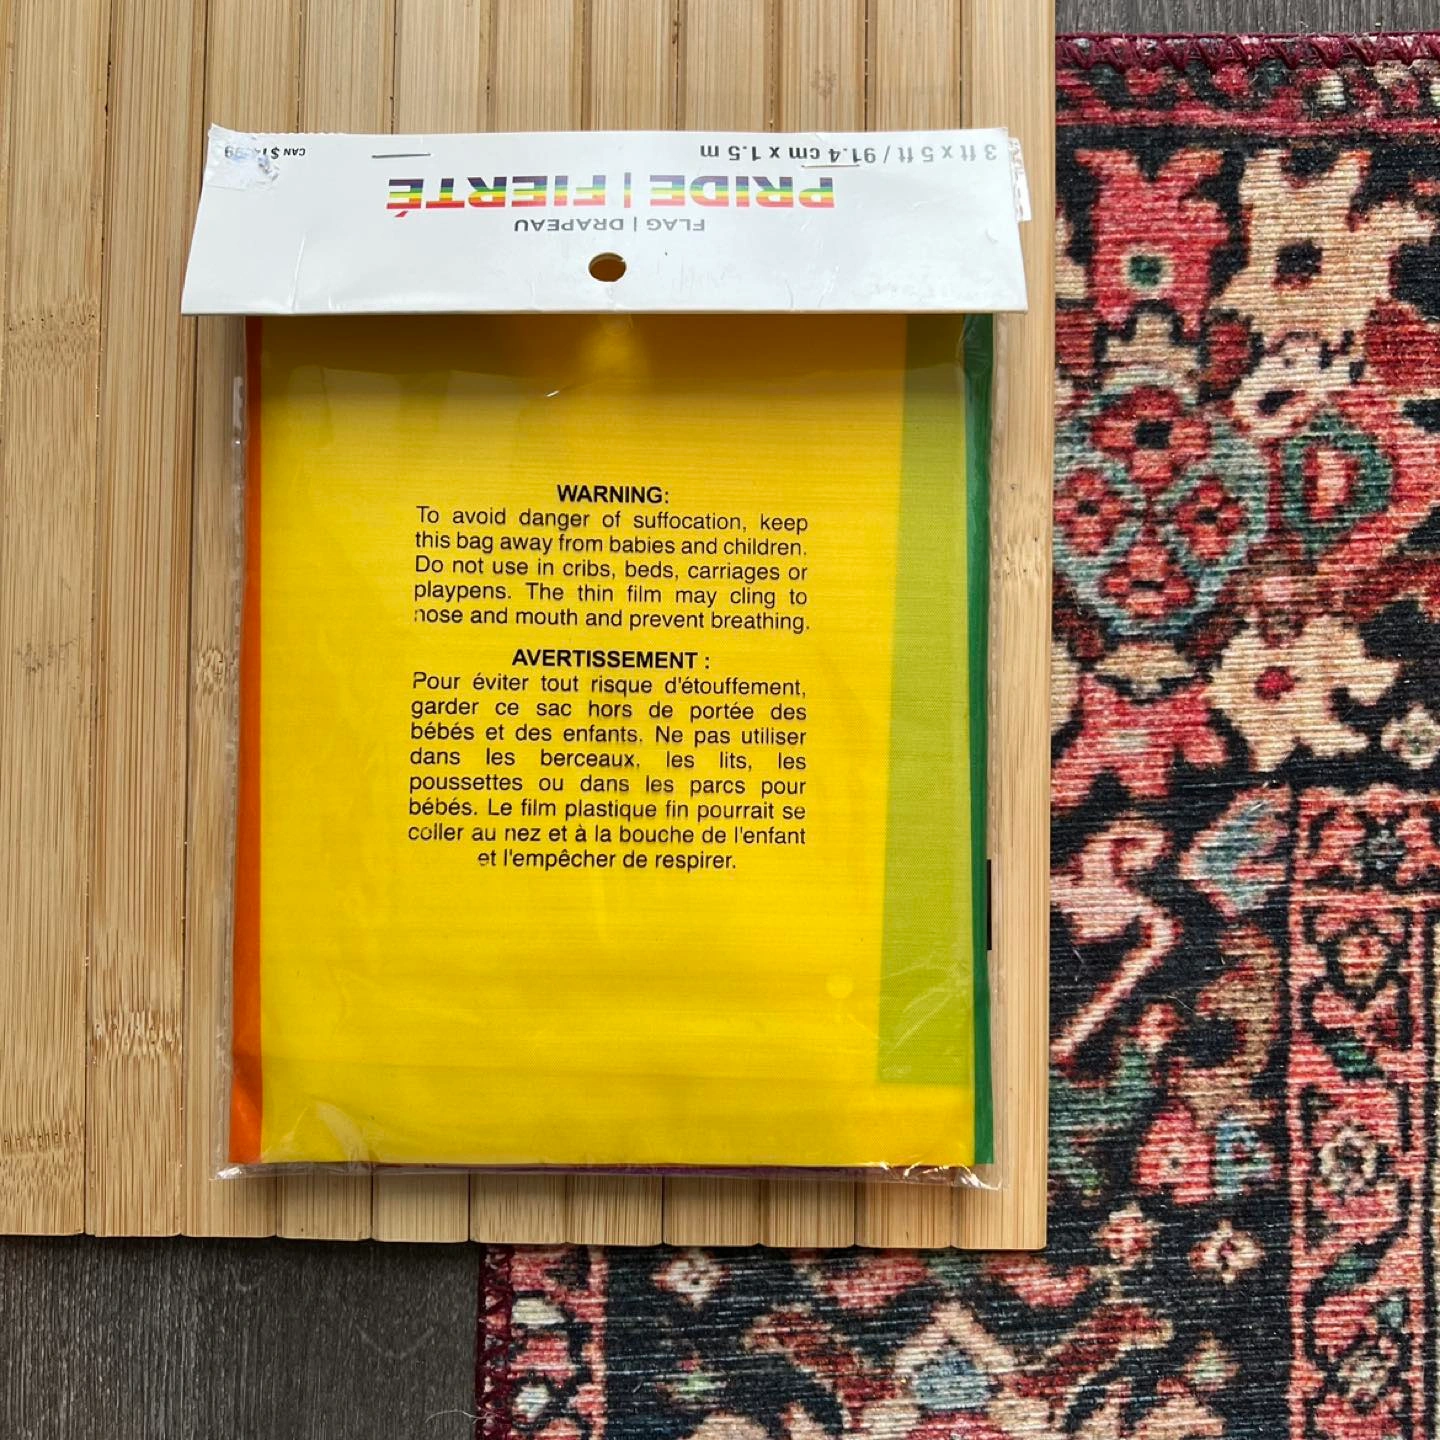 3 ft x 5 ft / 91.4 cm x 1.5 m
CAN $
PRIDE | FIERTÉ
FLAG | DRAPEAU
WARNING:
To avoid danger of suffocation, keep
this bag away from babies and children.
Do not use in cribs, beds, carriages or
playpens. The thin film may cling to
nose and mouth and prevent breathing.
AVERTISSEMENT :
Pour éviter tout risque d'étouffement,
garder ce sac hors de portée des
bébés et des enfants. Ne pas utiliser
dans les berceaux, les lits, les
poussettes ou dans les parcs pour
bébés. Le film plastique fin pourrait se
coller au nez et à la bouche de l'enfant
et l'empêcher de respirer.